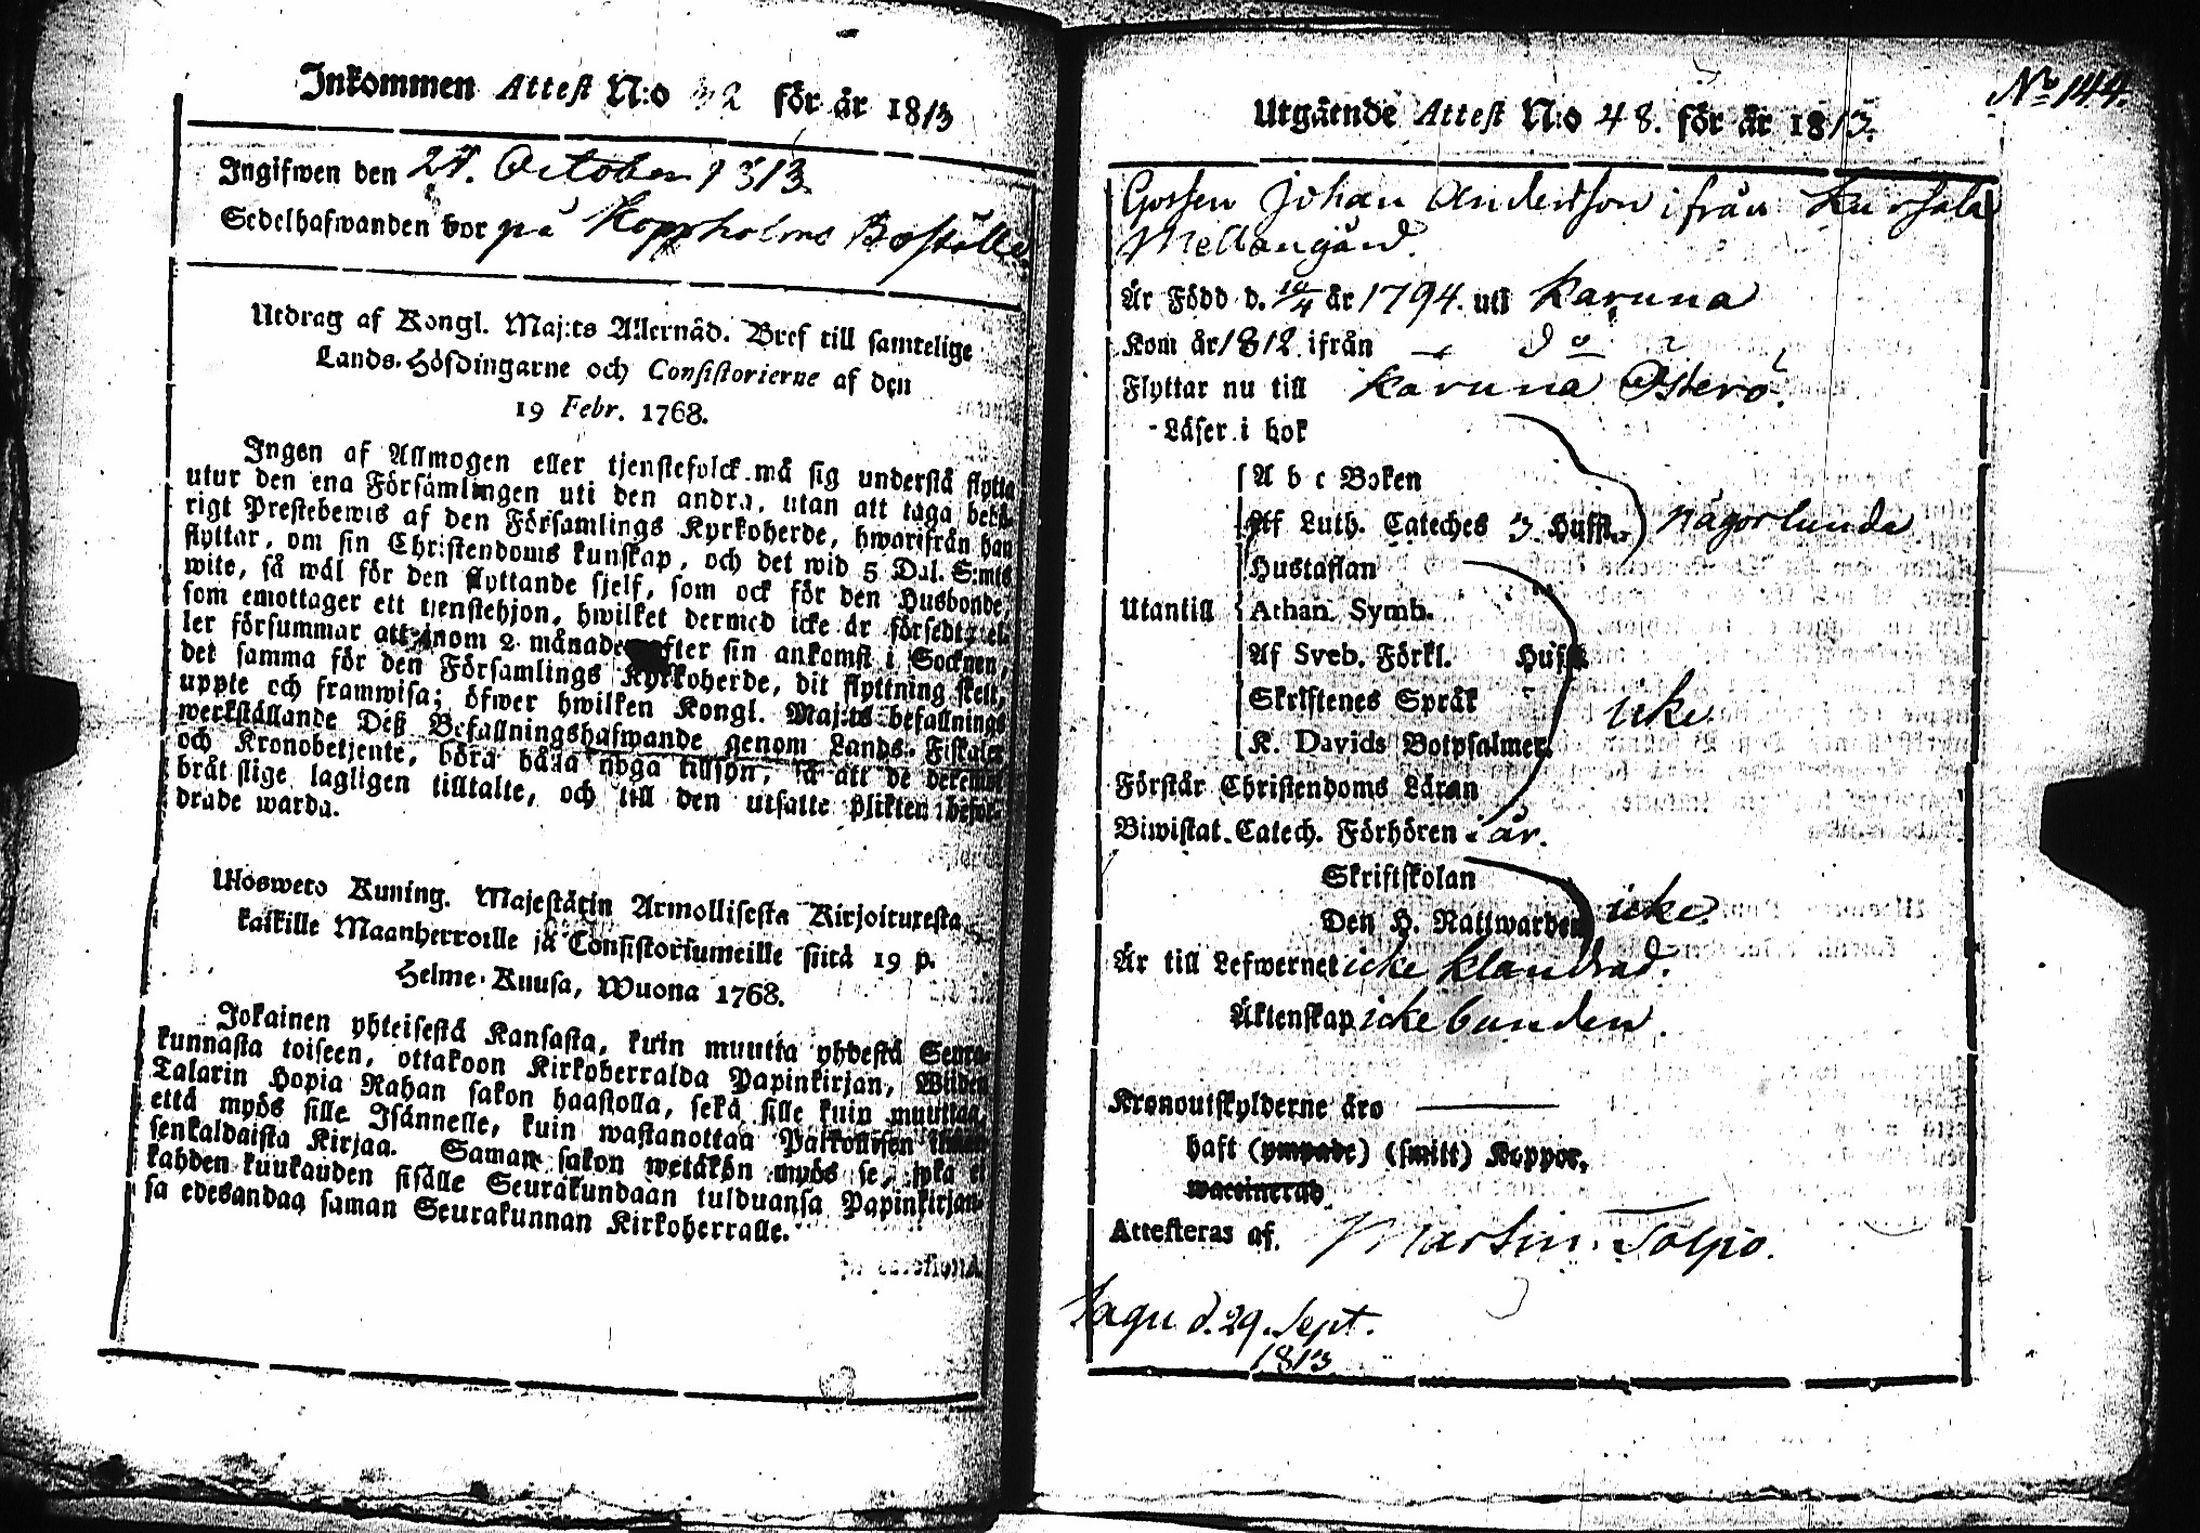 Inkommen Attest N:o 32 för år 1813
Ingifwen den 27. October 1813.
Sedelhafwanden bor på Koppholms Boställe.
Utdrag af Kongl. Maj:ts Allernåd. Bref till samtelige
Lands-Höfdingarne och Consistorierne af den
19 Febr. 1768.
Ingen af Allmogen eller tjenstefolck må sig understå flytta
utur den ena Församlingen uti den andra, utan att taga behö-
rigt Prestebewis af den Församlings Kyrkoherde, hwarifrån han
flyttar, om sin Christendoms kunskap, och det wid 5 Dal. S:mts
wite, så wäl för den flyttande sjelf, som ock för den Husbonde,
som emottager ett tjenstehjon, hwilket dermed icke är försedt, el-
ler försummar att inom 2 månader efter sin ankomst i Socknen,
det samma för den Församlings Kyrkoherde, dit flyttning skett,
uppte och framwisa; öfwer hwilken Kongl. Maj:ts befallnings
werkställande Deß Befallningshafwande genom Lands-Fiskaler
och Kronobetjente, böra bära noga tillsyn, så att de deremot
bråtslige lagligen tilltalte, och till den utsatte plikten befor-
drade warda.
Ulosweto Kuning. Majestätin Armollisesta Kirjoituxesta
kaikille Maanherroille ja Consistoriumeille siitä 19 p.
Helme-Kuusa, Wuona 1768.
Jokainen yhteisestä Kansasta, kuin muutta yhdestä Seura-
kunnasta toiseen, ottakoon Kirkoherralda Papinkirjan, Wiiden
Talarin Hopia Rahan sakon haastolla, sekä sille kuin muuttaa,
että myös sille Isännelle, kuin wastanottaa Palkollisen ilman
senkaldaista Kirjaa. Saman sakon wetäkön myös se, joka ei
kahden kuukauden sisälle Seurakundaan tulduansa Papinkirjan-
sa edesandaa saman Seurakunnan Kirkoherralle.
No 144.
Utgående Attest N:o 48. för år 1813.
Gossen Johan Andersson ifrån Kursala
Mellangård.
Är Född d. 10/4 år 1794. uti Karuna
Kom år 1812. ifrån do
Flyttar nu till Karuna Österö.
Läser i bok
A b c Boken
Af Luth. Cateches 3. Hufst. någorlunda
Hustaflan
Utantill Athan. Symb.
Af Sveb. Förkl. Hufst.
Skriftenes Språk icke
K. Davids Botpsalmer.
Förstår Christendoms Läran
Biwistat Catech. Förhören i år.
Skriftskolan
Den H. Nattwarden icke.
Är till Lefwernet icke klandrad.
Äktenskap icke bunden.
Kronoutskylderne äro
haft (ympade) (smitt) Koppor,
waccinerad
Attesteras af. Martin Tolpo.
Sagu d. 29. Sept.
1813